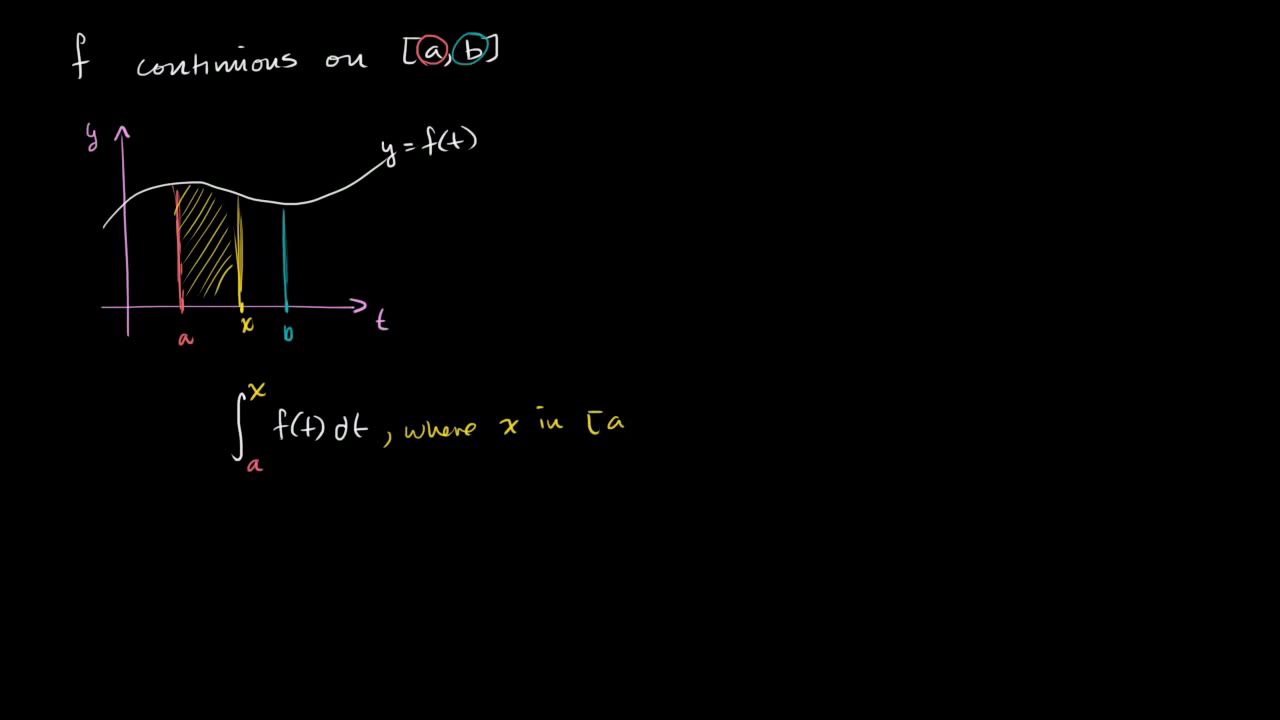 f continuous on [a, b]
y
y = f(t)
a
x
b
t
∫ₐˣ f(t) dt, where x in [a